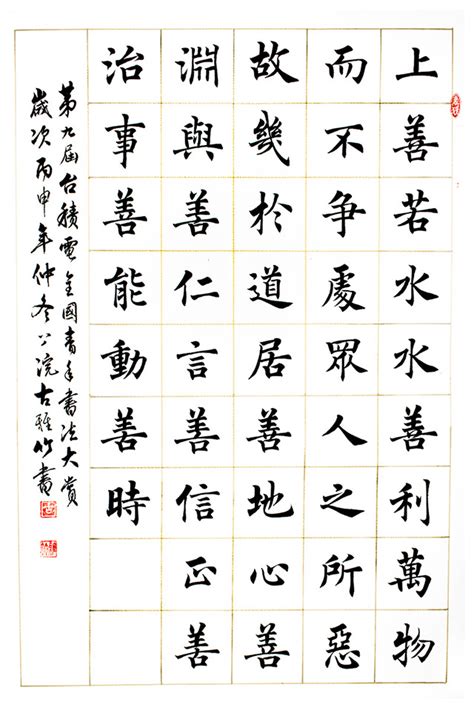 上善若水水善利萬物
而不爭處眾人之所惡
故幾於道居善地心善
淵與善仁言善信正善
治事善能動善時
第九屆台積電全國青年書法大賞
歲次丙申年仲冬上浣古雅竹書